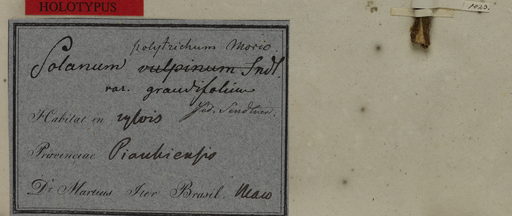 HOLOTYPUS
1023.
polytrichum Moric.
Solanum vulpinum Sndt.
var. grandifolium
Jud. Sendtner.
Habitat in sylvis
Provinciae Piauhiensis
Dr. Martius Iter Brasil. Macbr